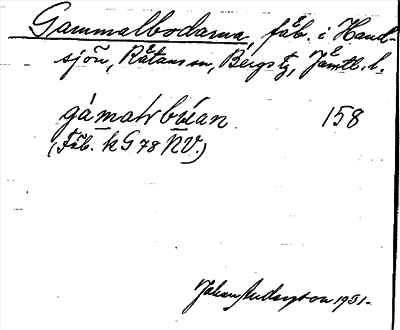 Gammalbodarna, fäb. i Hand-
sjön, Rätans sn, Bergs tg, Jämtl. l.
gámaLrbέan 158
(Fäb. k G 78 NV.)
Johan Anderston 1951.